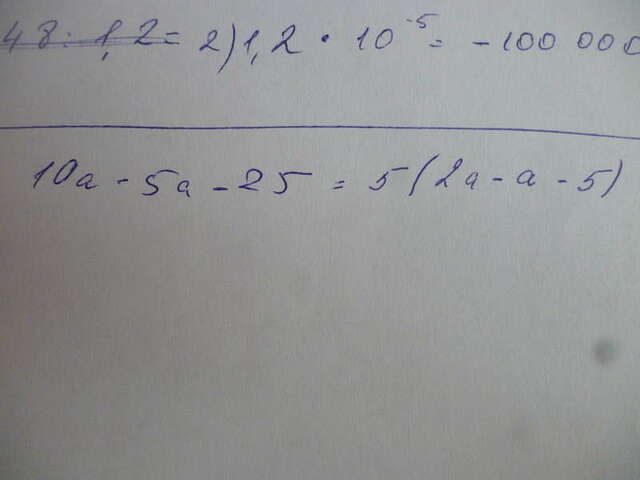 48 : 1,2 = 2) 1,2 · 10⁻⁵ = -100 000
10a - 5a - 25 = 5(2a - a - 5)